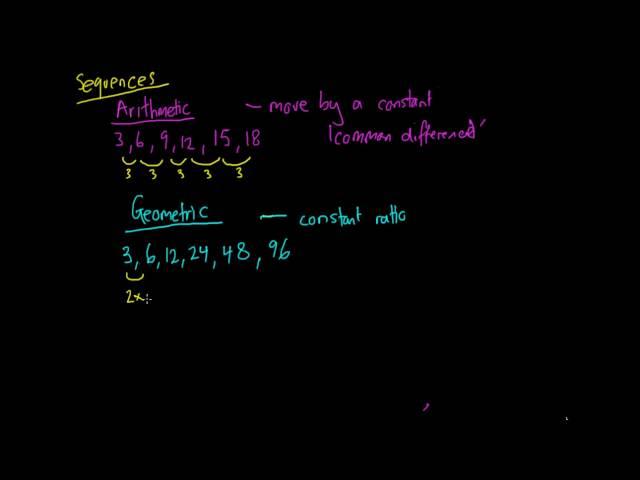 Sequences
Arithmetic — move by a constant
3, 6, 9, 12, 15, 18 'common difference'
3 3 3 3 3
Geometric — constant ratio
3, 6, 12, 24, 48, 96
2x